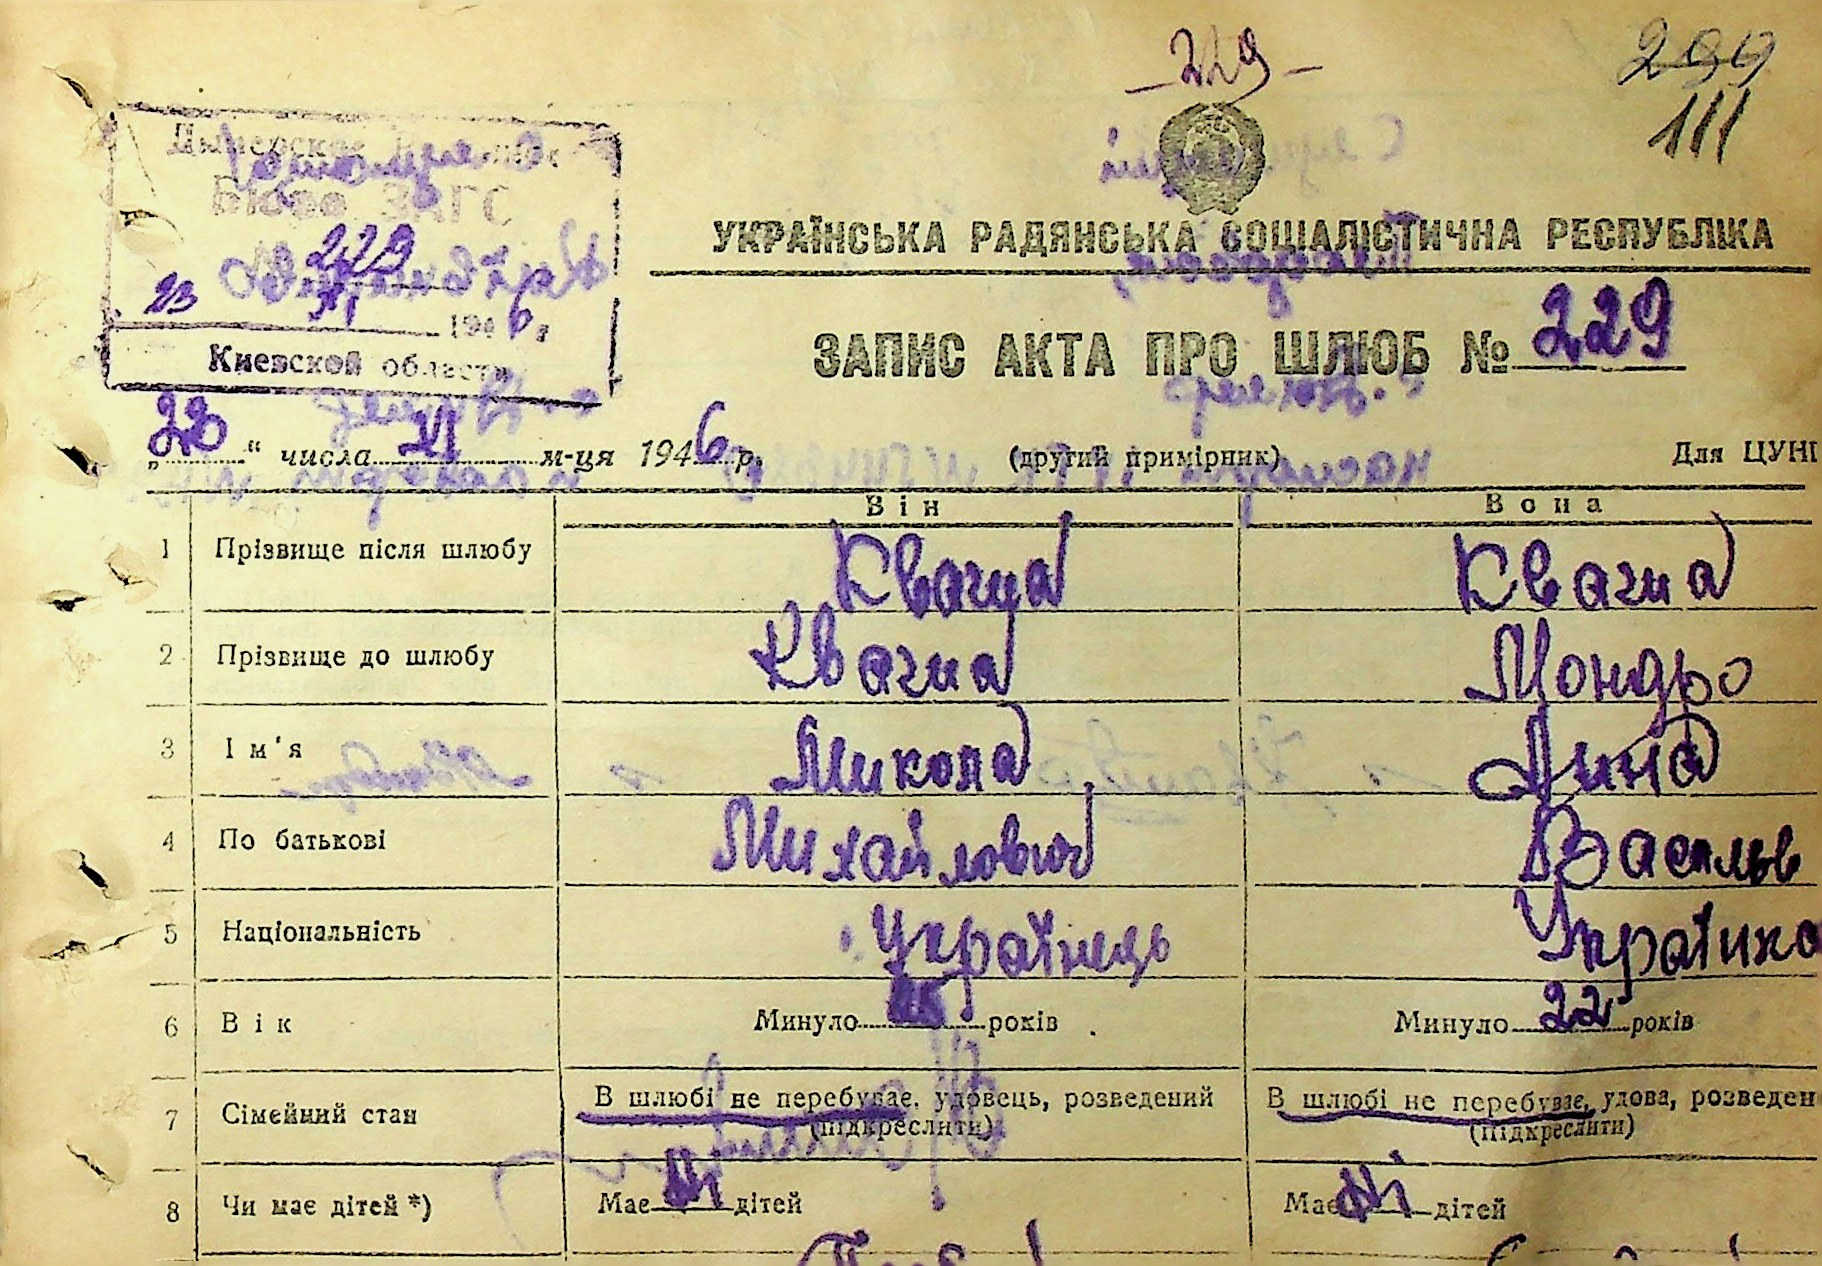 — 229 —
111
Бюро ЗАГС
229
23 XI 1946 г.
Киевской области
УКРАЇНСЬКА РАДЯНСЬКА СОЦІАЛІСТИЧНА РЕСПУБЛІКА
ЗАПИС АКТА ПРО ШЛЮБ № 229
„23“ числа XI м-ця 1946 р. (другий примірник) Для ЦУНГ
Він Вона
1 Прізвище після шлюбу Квачна Квачна
2 Прізвище до шлюбу Квачна Мондьо
3 Ім'я Микола
4 По батькові Михайлович Васильв
5 Національність Українець Українка
6 Вік Минуло 25 років Минуло 22 років
7 Сімейний стан В шлюбі не перебуває, удовець, розведений В шлюбі не перебуває, удова, розведен
(підкреслити) (підкреслити)
8 Чи має дітей *) Має ні дітей Має ні дітей